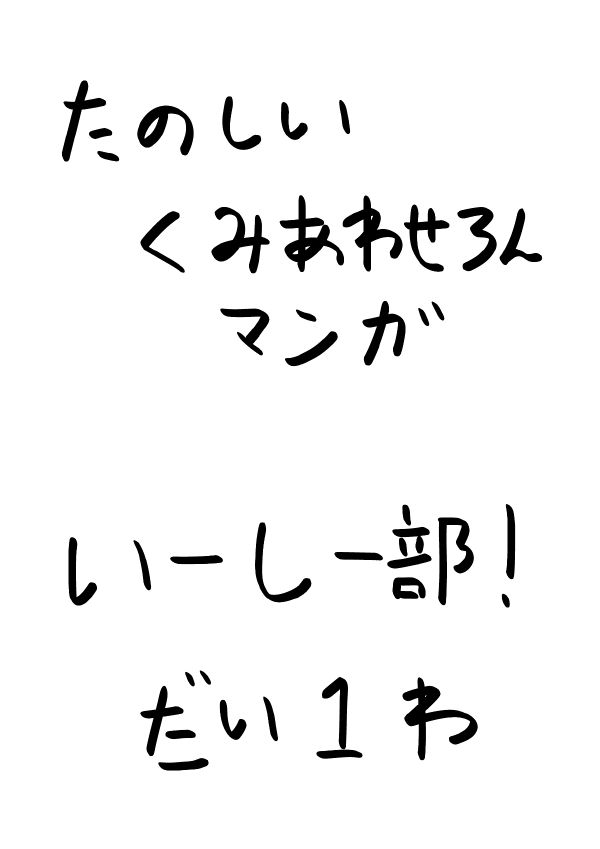 たのしい
くみあわせろん
マンガ
いーしー部!
だい1わ